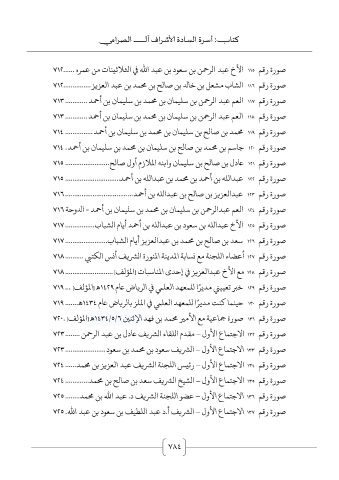 كتاب: أسرة السادة الأشراف آل الضرامي
صورة رقم ١١٥ الأخ عبد الرحمن بن سعود بن عبد الله في الثلاثينات من عمره ......٧١٢
صورة رقم ١١٦ الشاب مشعل بن خالد بن صالح بن محمد بن عبد العزيز ..............٧١٢
صورة رقم ١١٧ العم عبد الرحمن بن سليمان بن محمد بن سليمان بن أحمد ............٧١٣
صورة رقم ١١٨ العم عبد الرحمن بن سليمان بن محمد بن سليمان بن أحمد ............٧١٣
صورة رقم ١١٨ محمد بن صالح بن سليمان بن محمد بن سليمان بن أحمد ..............٧١٤
صورة رقم ١٢٠ جاسم بن محمد بن صالح بن سليمان بن محمد بن سليمان بن أحمد. ٧١٤
صورة رقم ١٢١ عادل بن صالح بن سليمان وابنه الملازم أول صالح.......................٧١٥
صورة رقم ١٢٢ عبدالله بن أحمد بن محمد بن عبدالله بن أحمد............................٧١٥
صورة رقم ١٢٣ عبدالعزيز بن صالح بن عبدالله بن أحمد...................................٧١٦
صورة رقم ١٢٤ العم عبدالرحمن بن سليمان بن محمد بن سليمان بن أحمد - الدوحة ٧١٦
صورة رقم ١٢٥ الأخ عبدالله بن سعود بن عبدالله بن أحمد أيام الشباب...............٧١٧
صورة رقم ١٢٦ سعد بن صالح بن محمد بن عبدالعزيز أيام الشباب.....................٧١٧
صورة رقم ١٢٧ أعضاء اللجنة مع نسابة المدينة المنورة الشريف أنس الكتبي .........٧١٨
صورة رقم ١٢٨ مع الأخ عبدالعزيز في إحدى المناسبات (المؤلف).........................٧١٨
صورة رقم ١٢٩ خبر تعييني مديرًا للمعهد العلمي في الرياض عام ١٤٢٩هـ(المؤلف) ...٧١٩
صورة رقم ١٣٠ حينما كنت مديرًا للمعهد العلمي في الملز بالرياض عام ١٤٣٤هـ.......٧١٩
صورة رقم ١٣١ صورة جماعية مع الأمير محمد بن فهد الإثنين ١٤٣٤/٥/٦هـ(المؤلف) .٧٢٠
صورة رقم ١٣٢ الاجتماع الأول – مقدم اللقاء الشريف عادل بن عبد الرحمن .......٧٢٣
صورة رقم ١٣٣ الاجتماع الأول – الشريف سعود بن محمد بن سعود.....................٧٢٣
صورة رقم ١٣٤ الاجتماع الأول – رئيس اللجنة الشريف عبد العزيز بن محمد......٧٢٤
صورة رقم ١٣٥ الاجتماع الأول – الشيخ الشريف سعد بن صالح بن محمد............٧٢٤
صورة رقم ١٣٦ الاجتماع الأول – عضو اللجنة الشريف د. عبد الله بن محمد........٧٢٥
صورة رقم ١٣٧ الاجتماع الأول – الشريف أ.د عبد اللطيف بن سعود بن عبد الله. ٧٢٥
٧٨٤